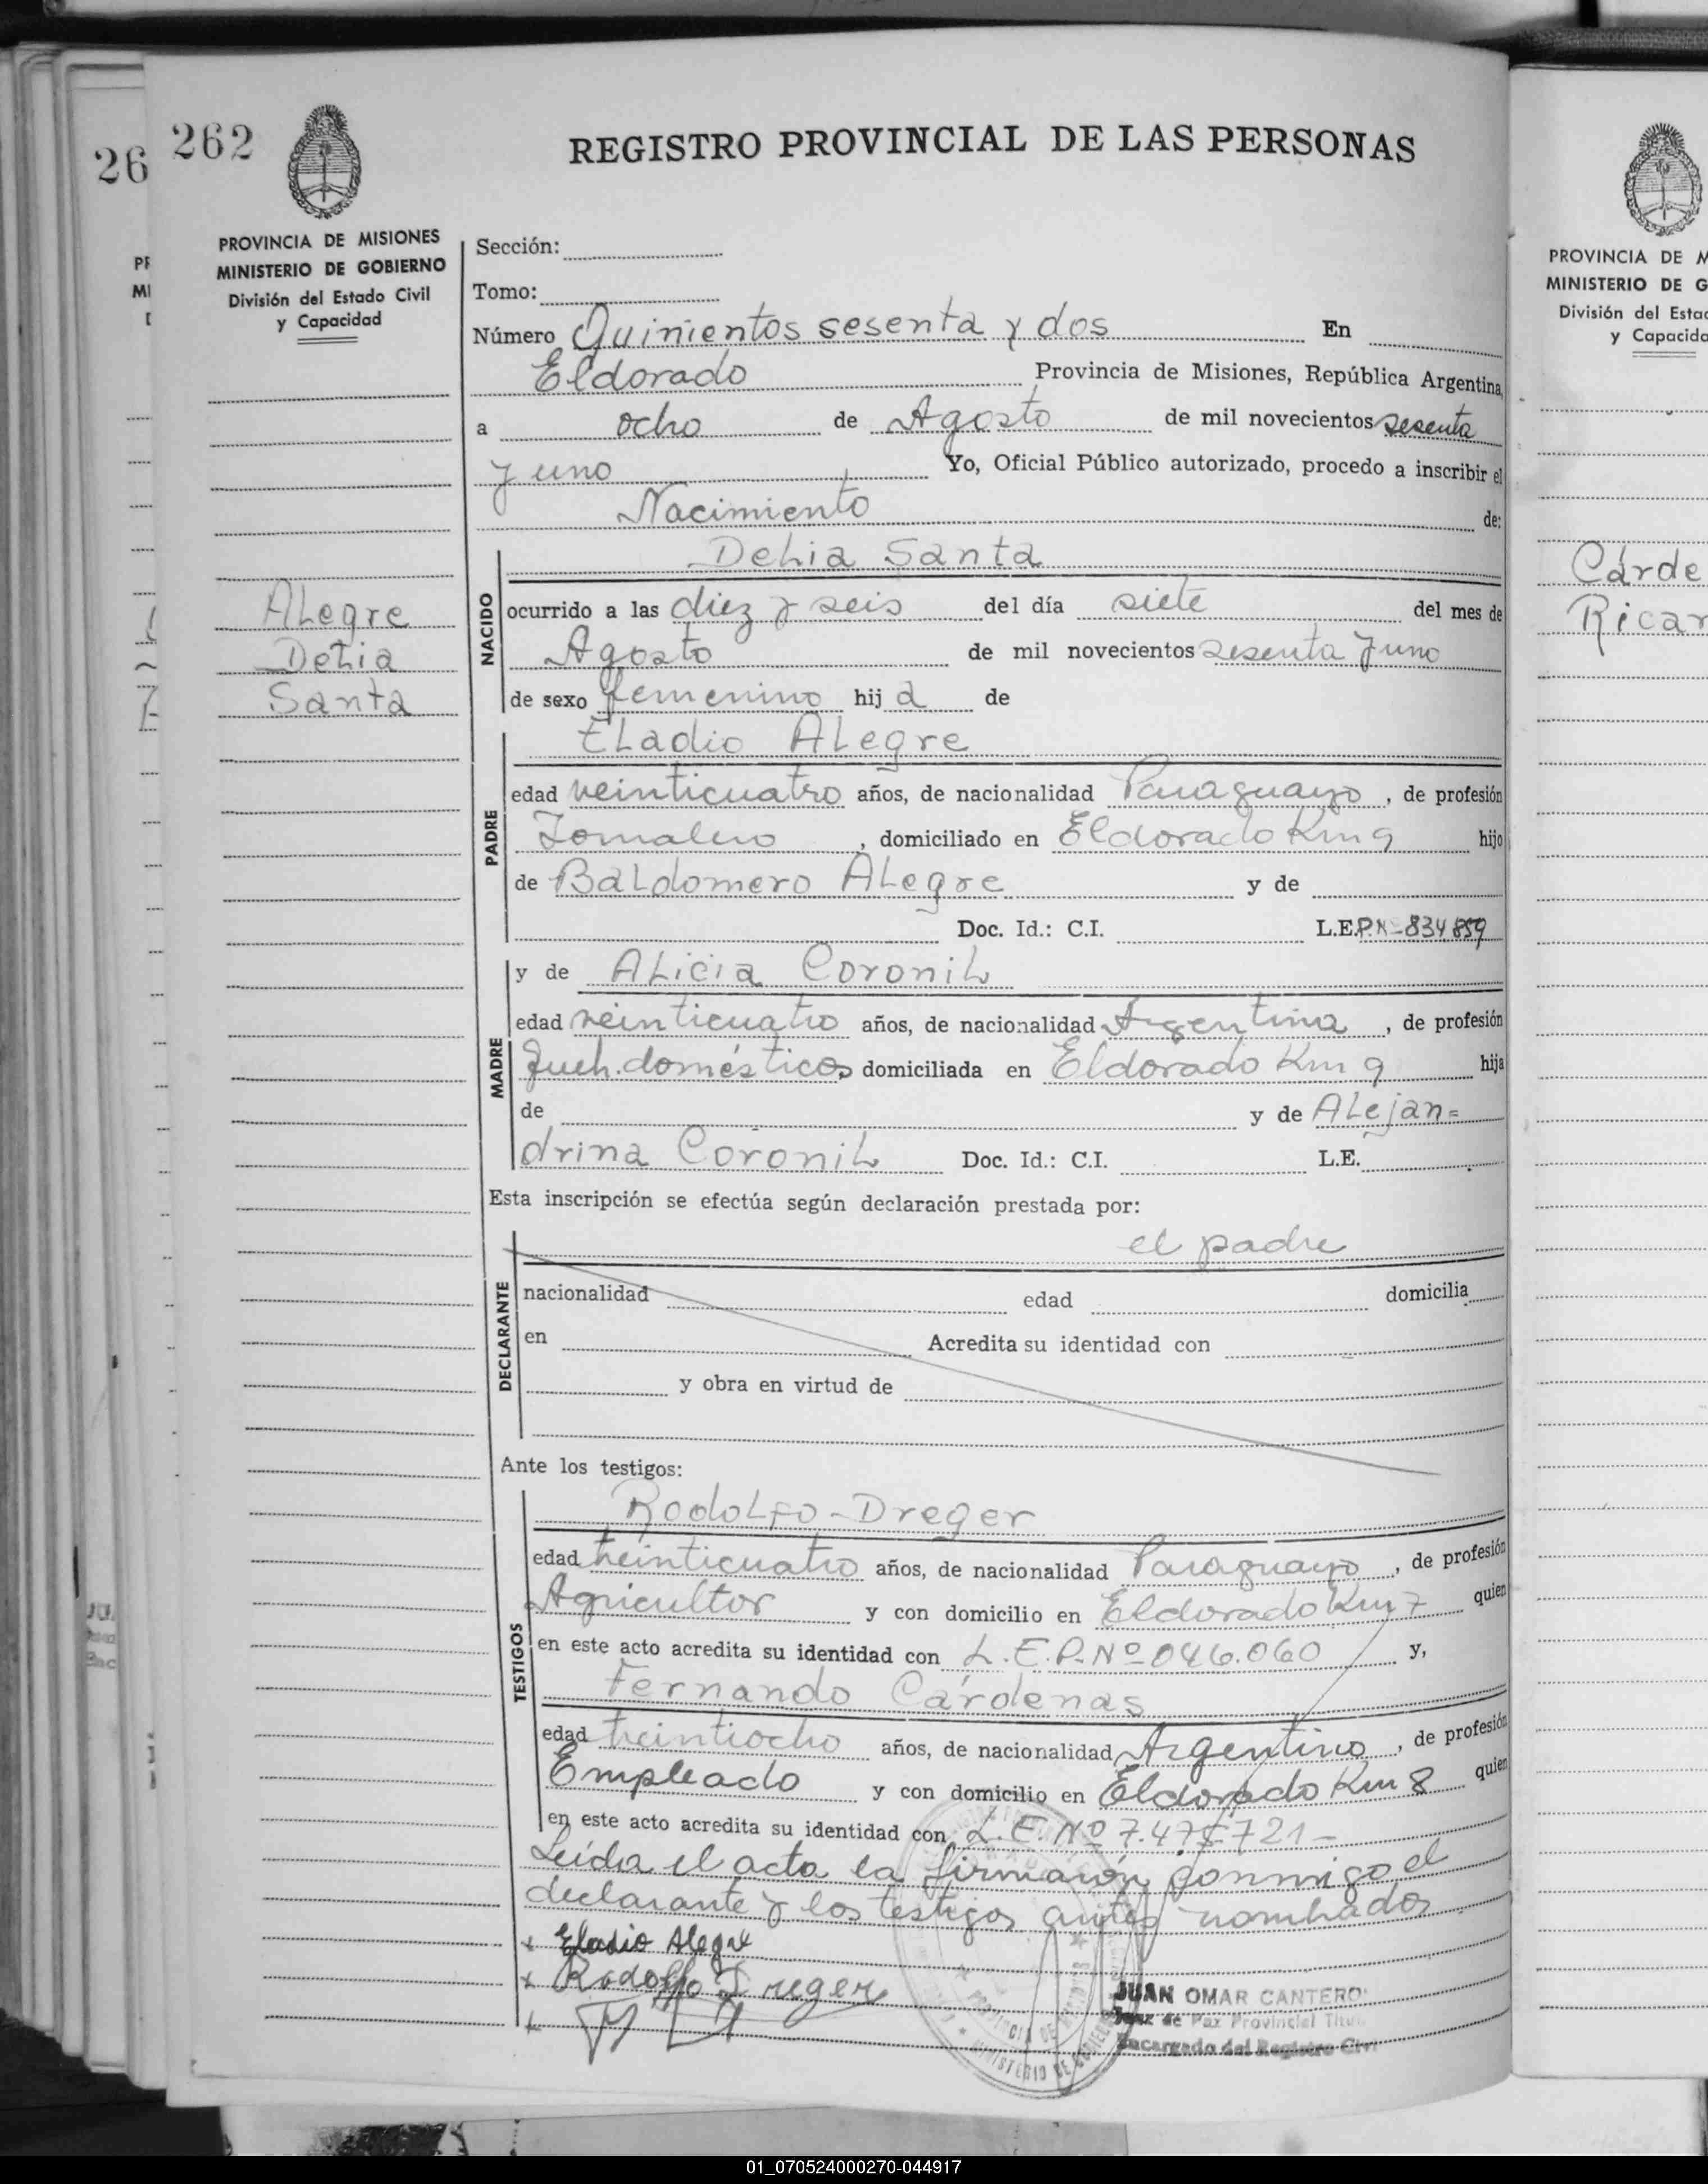 26
262
REGISTRO PROVINCIAL DE LAS PERSONAS
PROVINCIA DE MISIONES
MINISTERIO DE GOBIERNO
División del Estado Civil
y Capacidad
Sección:
Tomo:
Número Quinientos sesenta y dos En
Eldorado Provincia de Misiones, República Argentina,
a ocho de Agosto de mil novecientos sesenta
y uno Yo, Oficial Público autorizado, procedo a inscribir el
Nacimiento de:
Alegre
Delia
Santa
NACIDO
Delia Santa
ocurrido a las diez y seis del día siete del mes de
Agosto de mil novecientos sesenta y uno
de sexo femenino hij a de
PADRE
Eladio Alegre
edad veinticuatro años, de nacionalidad Paraguayo, de profesión
Jornalero, domiciliado en Eldorado Km 9 hijo
de Baldomero Alegre y de
Doc. Id.: C.I. L.E.P.Nº 834.859
MADRE
y de Alicia Coronil
edad veinticuatro años, de nacionalidad Argentina, de profesión
Queh. domésticos domiciliada en Eldorado Km 9 hija
de y de Alejan=
drina Coronil Doc. Id.: C.I. L.E.
Esta inscripción se efectúa según declaración prestada por:
DECLARANTE
el padre
nacionalidad edad domicilia
en Acredita su identidad con
y obra en virtud de
Ante los testigos:
TESTIGOS
Rodolfo-Dreger
edad treinticuatro años, de nacionalidad Paraguayo, de profesión
Agricultor y con domicilio en Eldorado Km 7 quien
en este acto acredita su identidad con L.E.P.Nº 046.060 y,
Fernando Cárdenas
edad treintiocho años, de nacionalidad Argentino, de profesión
Empleado y con domicilio en Eldorado Km 8 quien
en este acto acredita su identidad con L.E.Nº 7.475.721-
Leída el acta la firmaron conmigo el
declarante y los testigos antes nombrados.
x Eladio Alegre
x Rodolfo Dreger
x
JUAN OMAR CANTERO
Juez de Paz Provincial Titul
Encargado del Registro Civil
MINISTERIO DE GOBIERNO
PROVINCIA DE M
MINISTERIO DE G
División del Estad
y Capacida
Cárde
Ricar
01_070524000270-044917